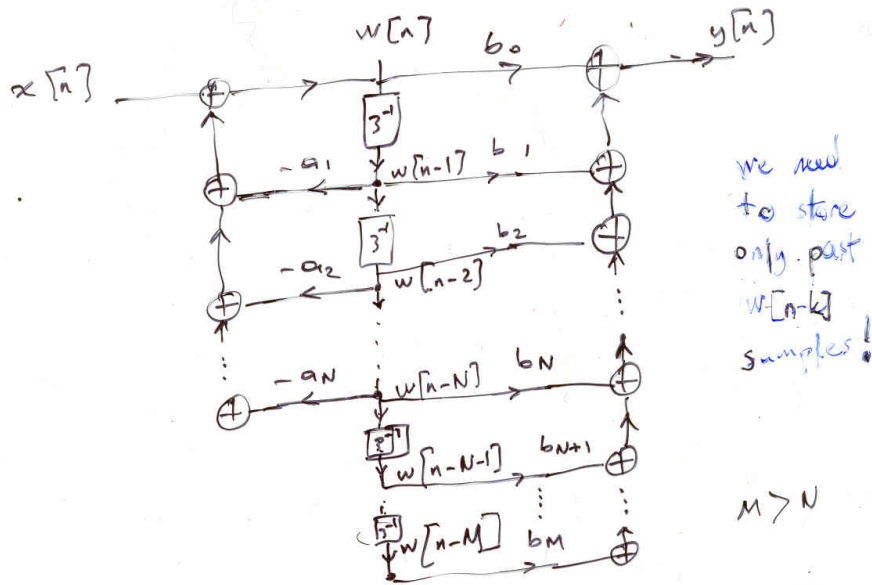 w[n]
b₀
y[n]
x[n]
z⁻¹
-a₁
w[n-1]
b₁
z⁻¹
b₂
-a₂
w[n-2]
-aN
w[n-N]
bN
z⁻¹
w[n-N-1]
bN+1
z⁻¹
w[n-M]
bM
we need
to store
only past
w[n-k]
samples!
M > N